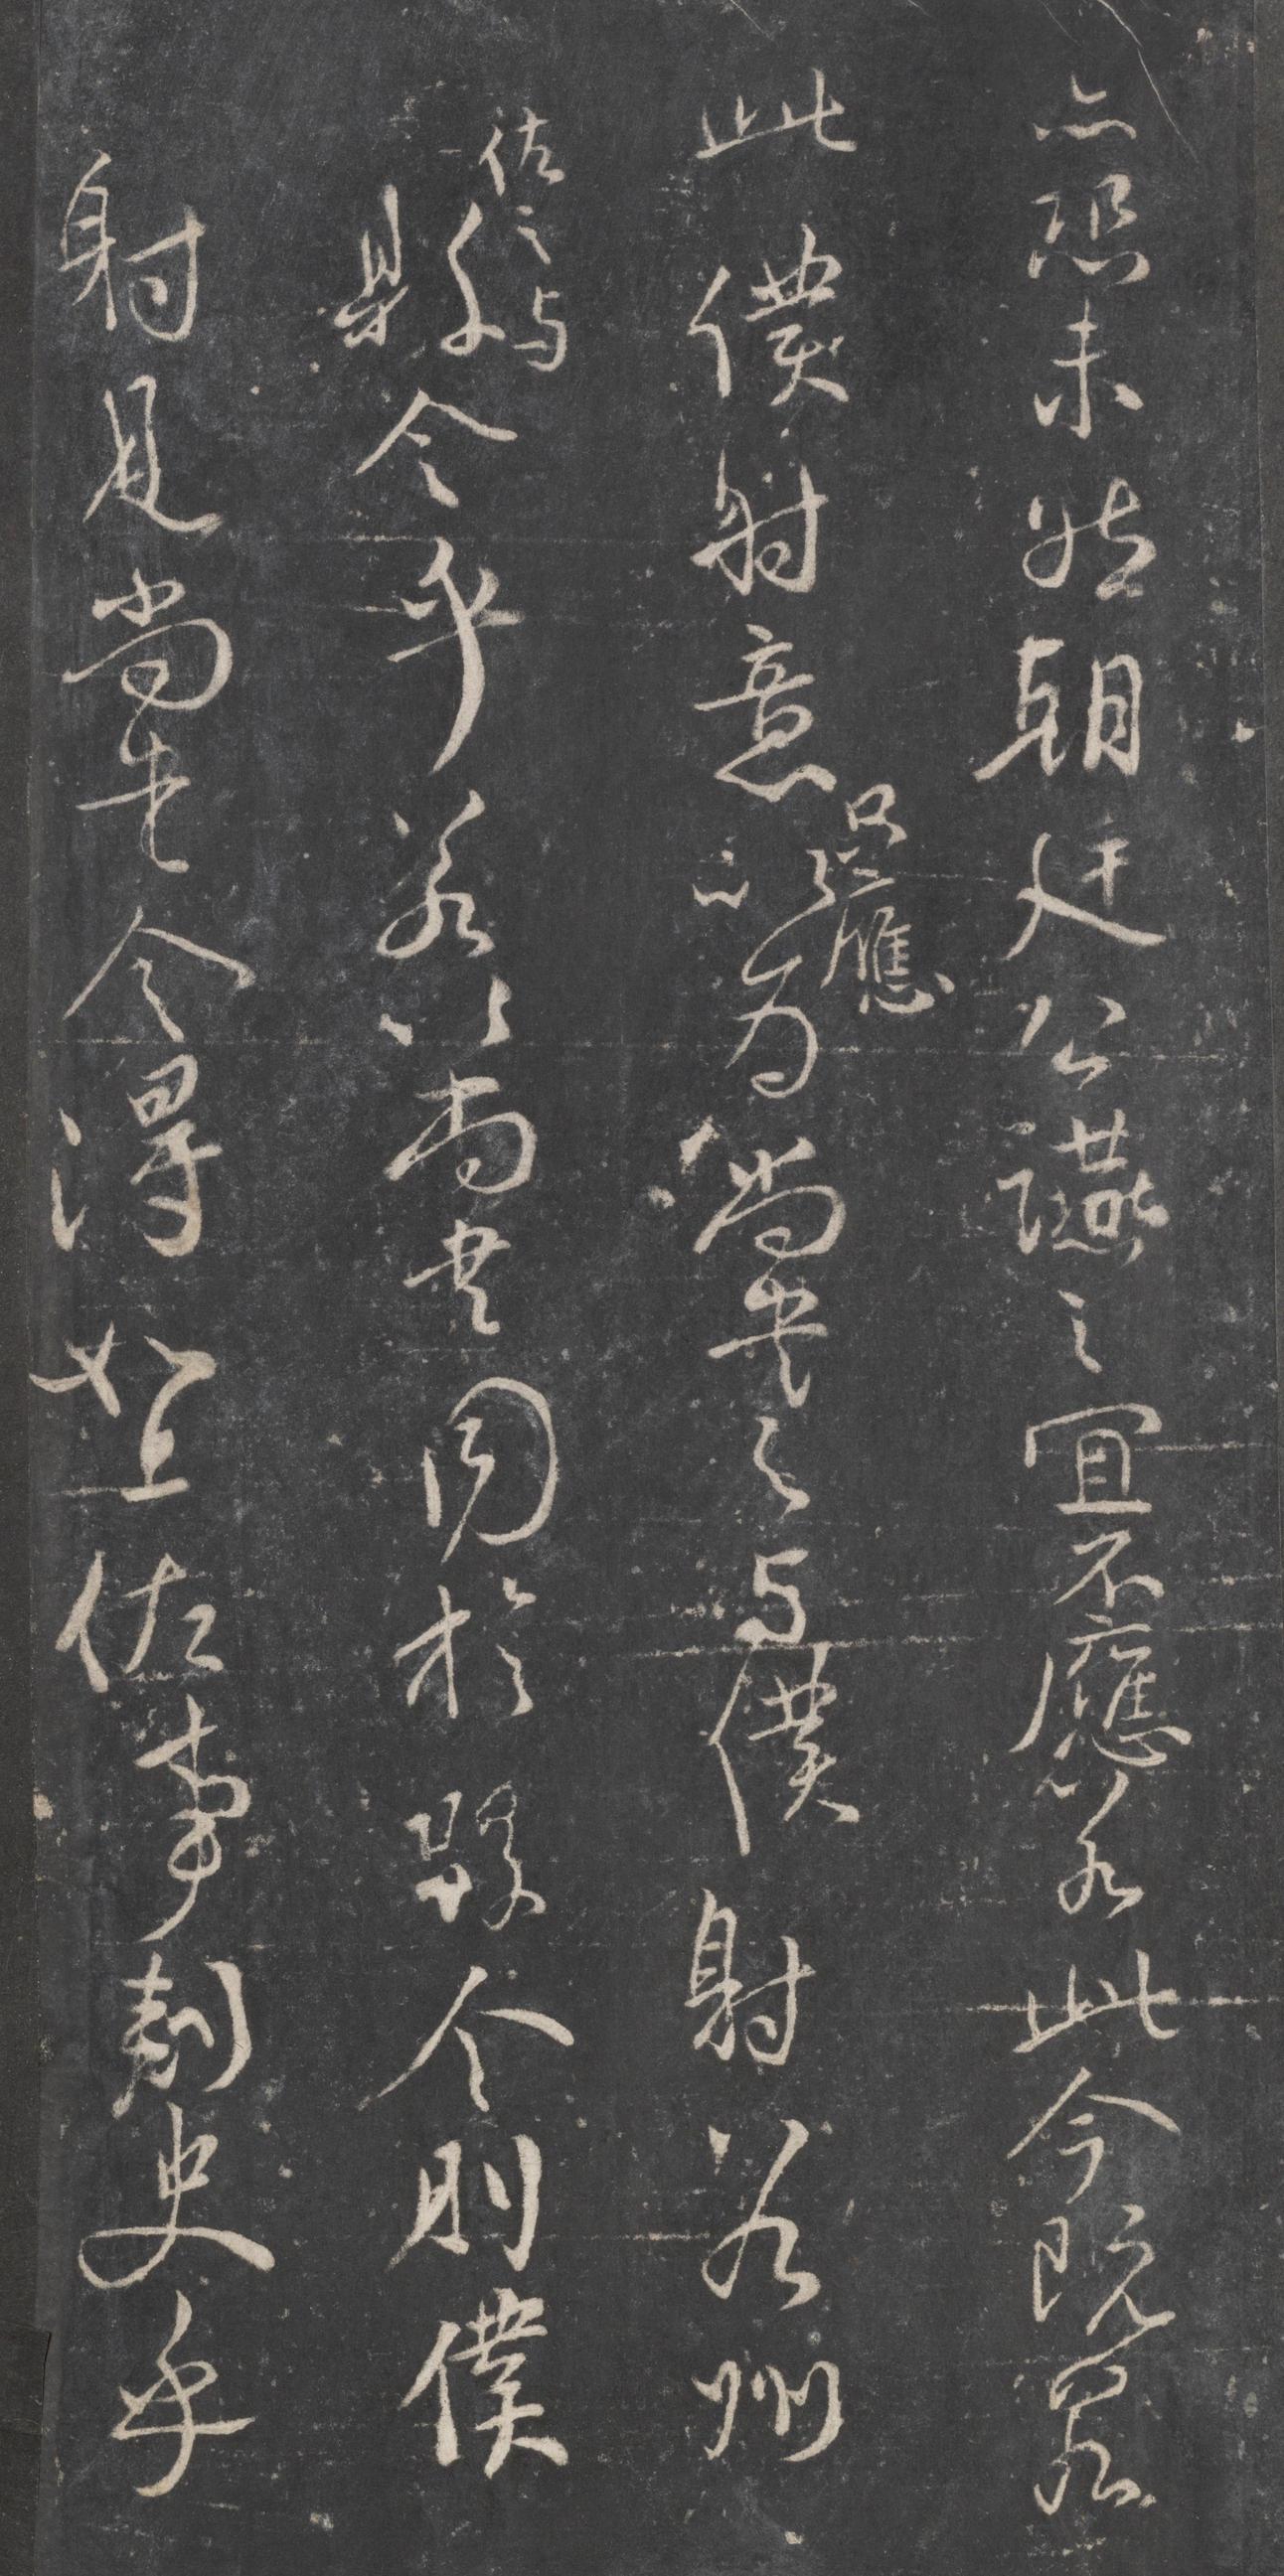 亦恐未然朝廷公讌之宜不應若此今既若
此僕射意只應以為尚書之与僕射若州
佐之与縣令乎若以尚書同於縣令則僕
射見尚書令得如上佐事刺史乎